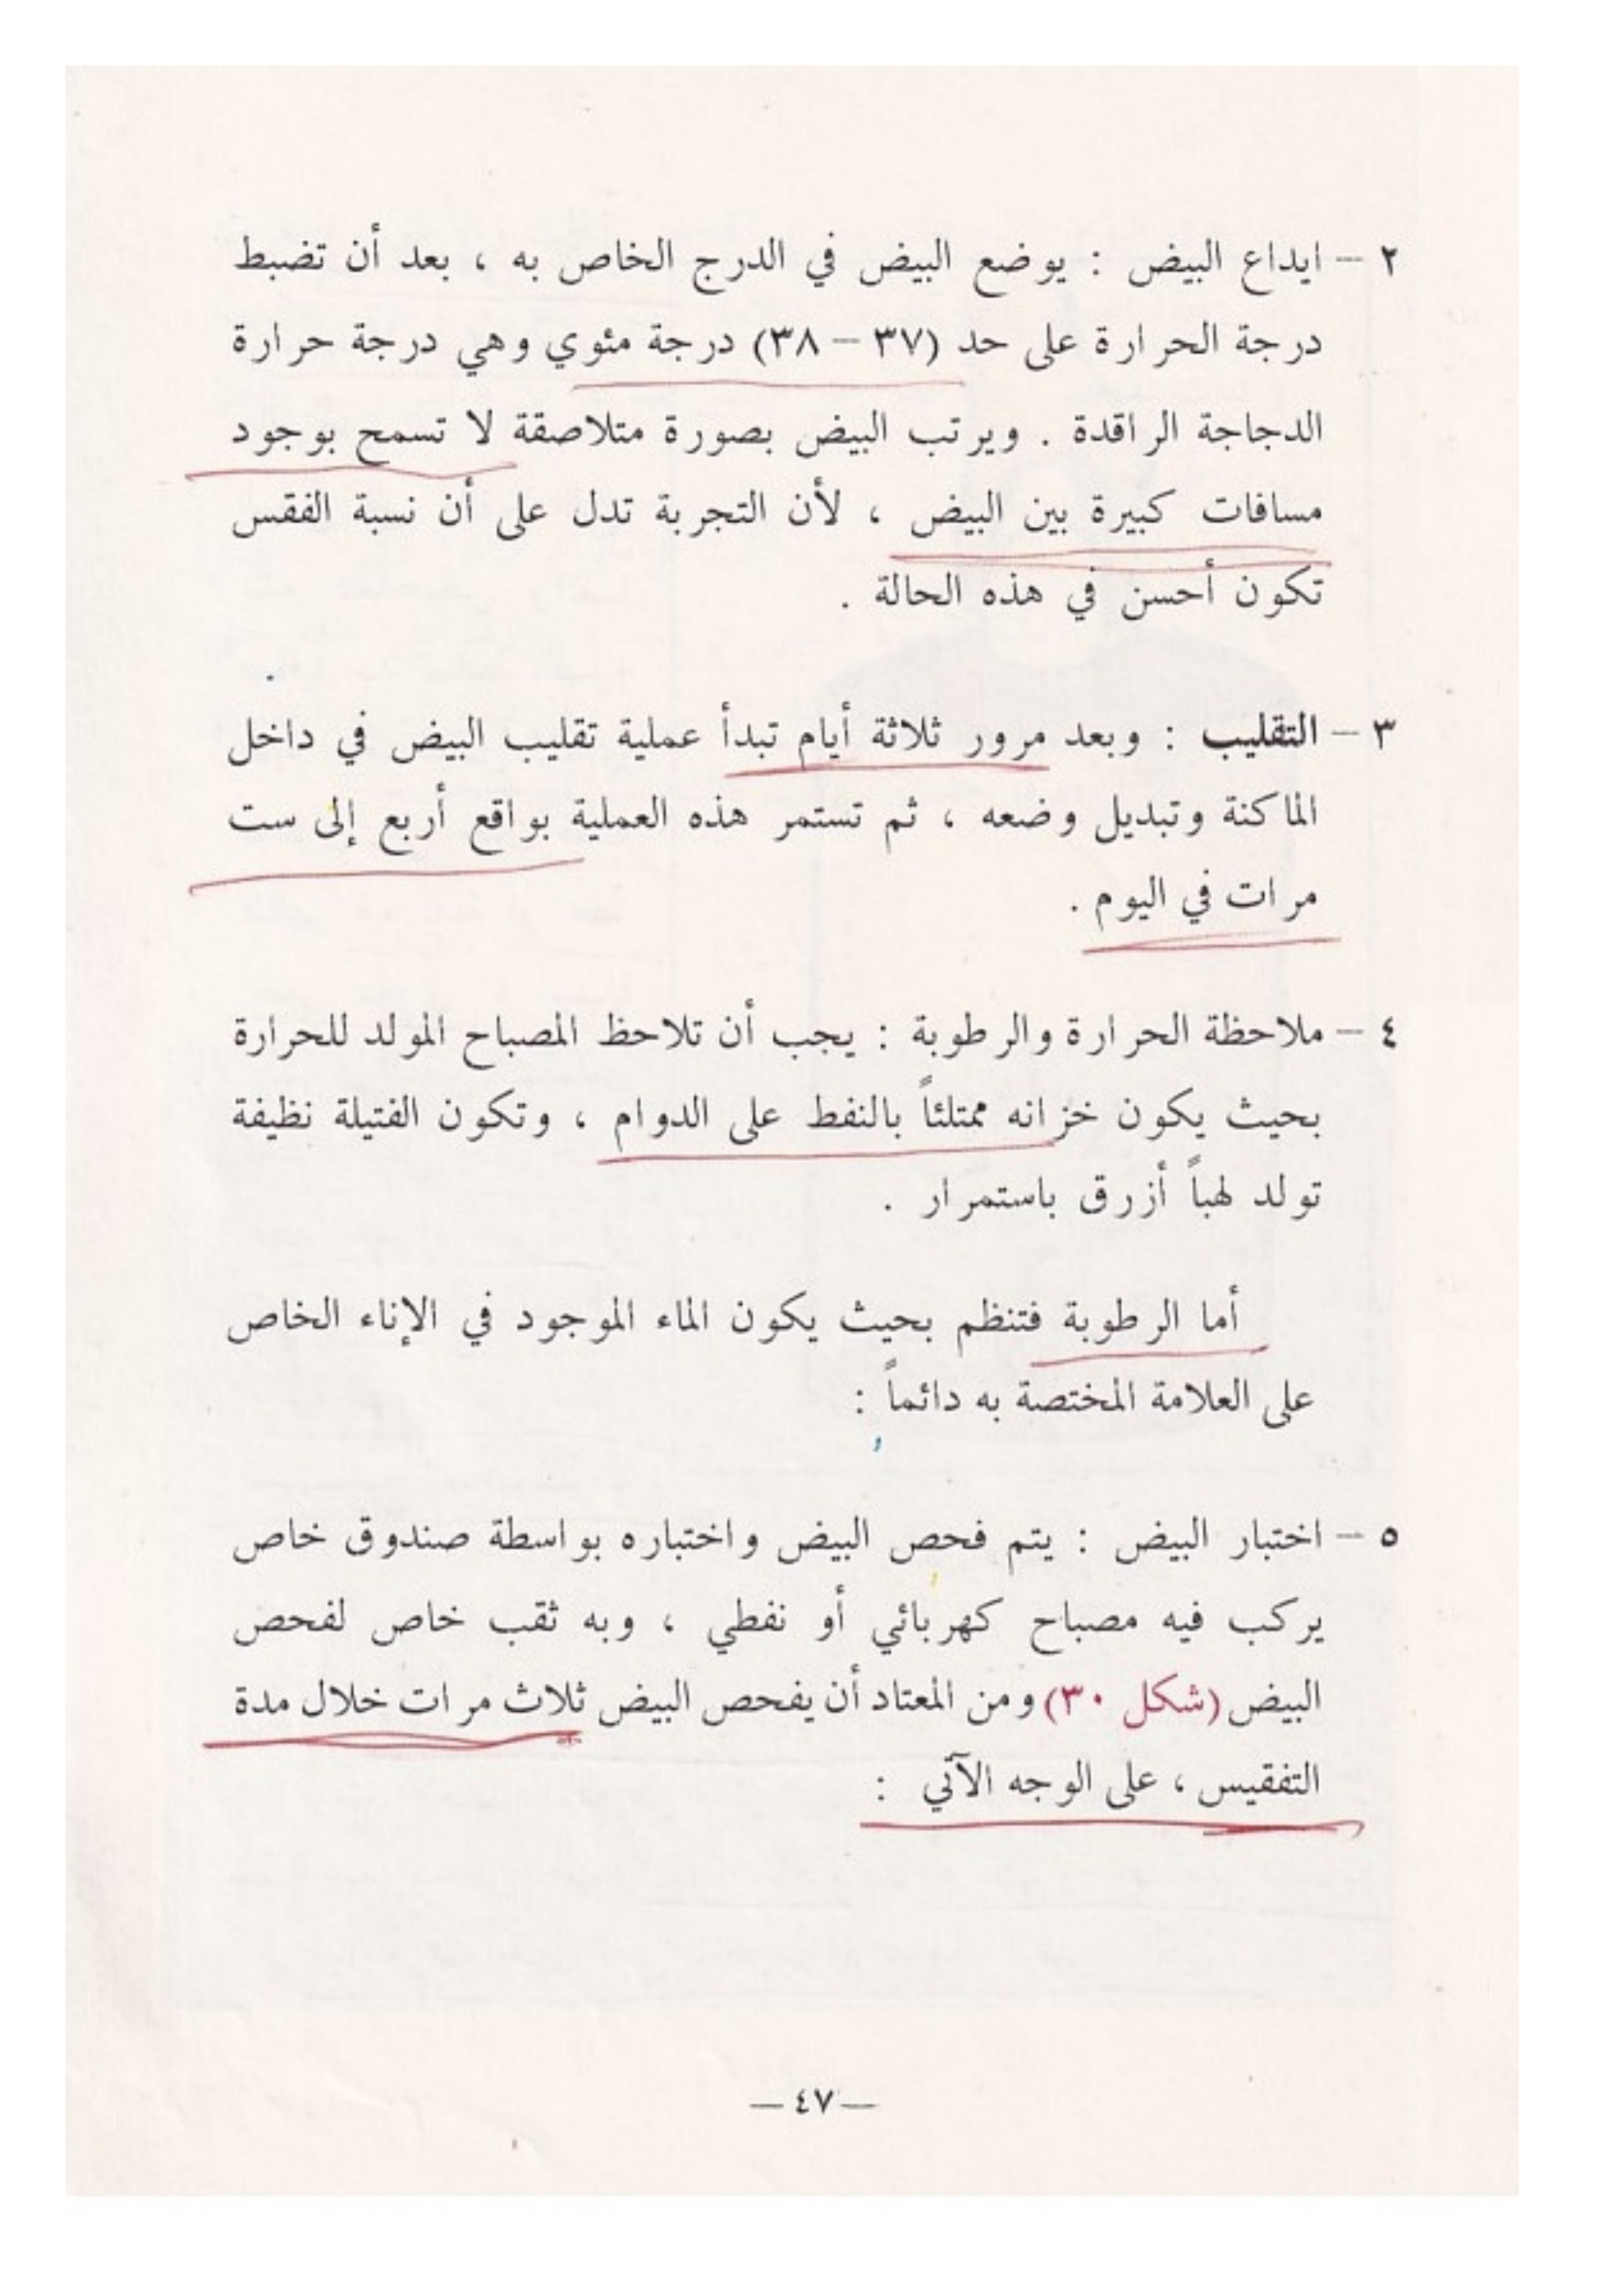 ٢ – ايداع البيض : يوضع البيض في الدرج الخاص به ، بعد أن تضبط
درجة الحرارة على حد (٣٧ – ٣٨) درجة مئوي وهي درجة حرارة
الدجاجة الراقدة . ويرتب البيض بصورة متلاصقة لا تسمح بوجود
مسافات كبيرة بين البيض ، لأن التجربة تدل على أن نسبة الفقس
تكون أحسن في هذه الحالة .
٣ – التقليب : وبعد مرور ثلاثة أيام تبدأ عملية تقليب البيض في داخل
الماكنة وتبديل وضعه ، ثم تستمر هذه العملية بواقع أربع إلى ست
مرات في اليوم .
٤ – ملاحظة الحرارة والرطوبة : يجب أن تلاحظ المصباح المولد للحرارة
بحيث يكون خزانه ممتلئاً بالنفط على الدوام ، وتكون الفتيلة نظيفة
تولد لهباً أزرق باستمرار .
أما الرطوبة فتنظم بحيث يكون الماء الموجود في الإناء الخاص
على العلامة المختصة به دائماً :
٥ – اختبار البيض : يتم فحص البيض واختباره بواسطة صندوق خاص
يركب فيه مصباح كهربائي أو نفطي ، وبه ثقب خاص لفحص
البيض (شكل ٣٠) ومن المعتاد أن يفحص البيض ثلاث مرات خلال مدة
التفقيس ، على الوجه الآتي :
— ٤٧ —